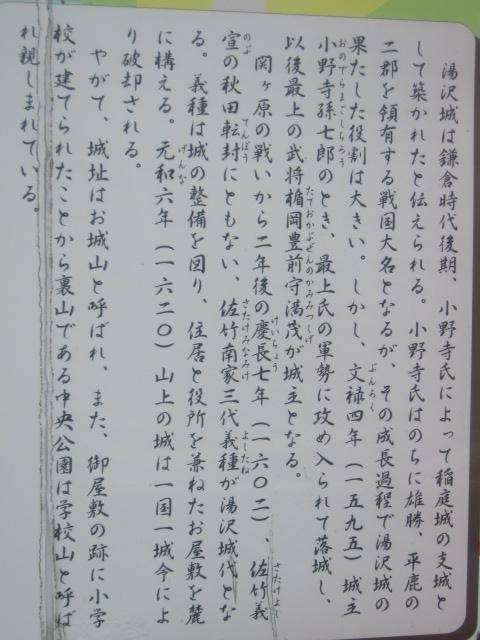 湯沢城は鎌倉時代後期、小野寺氏によって稲庭城の支城と
して築かれたと伝えられる。小野寺氏はのちに雄勝、平鹿の
二郡を領有する戦国大名となるが、その成長過程で湯沢城の
果たした役割は大きい。しかし、文禄四年(一五九五)城主
小野寺孫七郎のとき、最上氏の軍勢に攻め入られて落城し、
以後最上の武将楯岡豊前守満茂が城主となる。
関ヶ原の戦いから二年後の慶長七年(一六〇二)、佐竹義
宣の秋田転封にともない、佐竹南家三代義種が湯沢城代とな
る。義種は城の整備を図り、住居と役所を兼ねたお屋敷を麓
に構える。元和六年(一六二〇)山上の城は一国一城令によ
り破却される。
やがて、城址はお城山と呼ばれ、また、御屋敷の跡に小学
校が建てられたことから裏山である中央公園は学校山と呼ば
れ親しまれている。